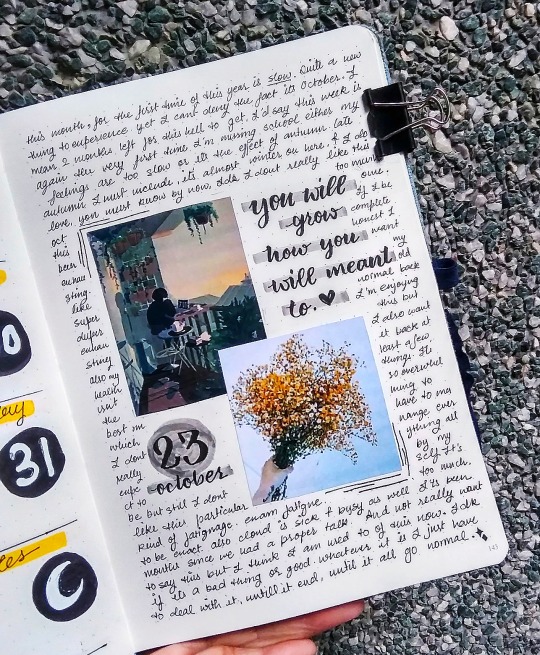 this month, for the first time of this year is slow. Quite a new
thing to experience yet I can't deny the fact it's October. I
mean 2 months left for this hell to get. I'd say this week is
again the very first time I'm missing school either my
feelings are too slow or its the effect of autumn. late
autumn I must include, its almost winter on here. & I do
love, you must know by now. Idk I dont really like this
oct
this
been
exhau
sting.
like
super
duper
exhau
sting
also my
health
isnt
the
best rn
which
I dont
really
expe
ct to
be but still I dont
too much
one.
if I be
complete
honest I
want
my
old
normal back
I'm enjoying
this but
I also want
it back at
least a few
things. Its
so overwhel
ming to
have to ma
nange ever
ything all
by my
self. It's
too much.
you will
grow
how you
will meant
to. ♥
23
october
like this particular
kind of fatignage. exam fatigue
to be exact also cloud is sick & busy as well. It's been
months since we had a proper talk. And not really want
to say this but I think I am used to of this now. Idk
if its a bad thing or good. whatever it is I just have
to deal with it, untill it end, until it all go normal.
0
31